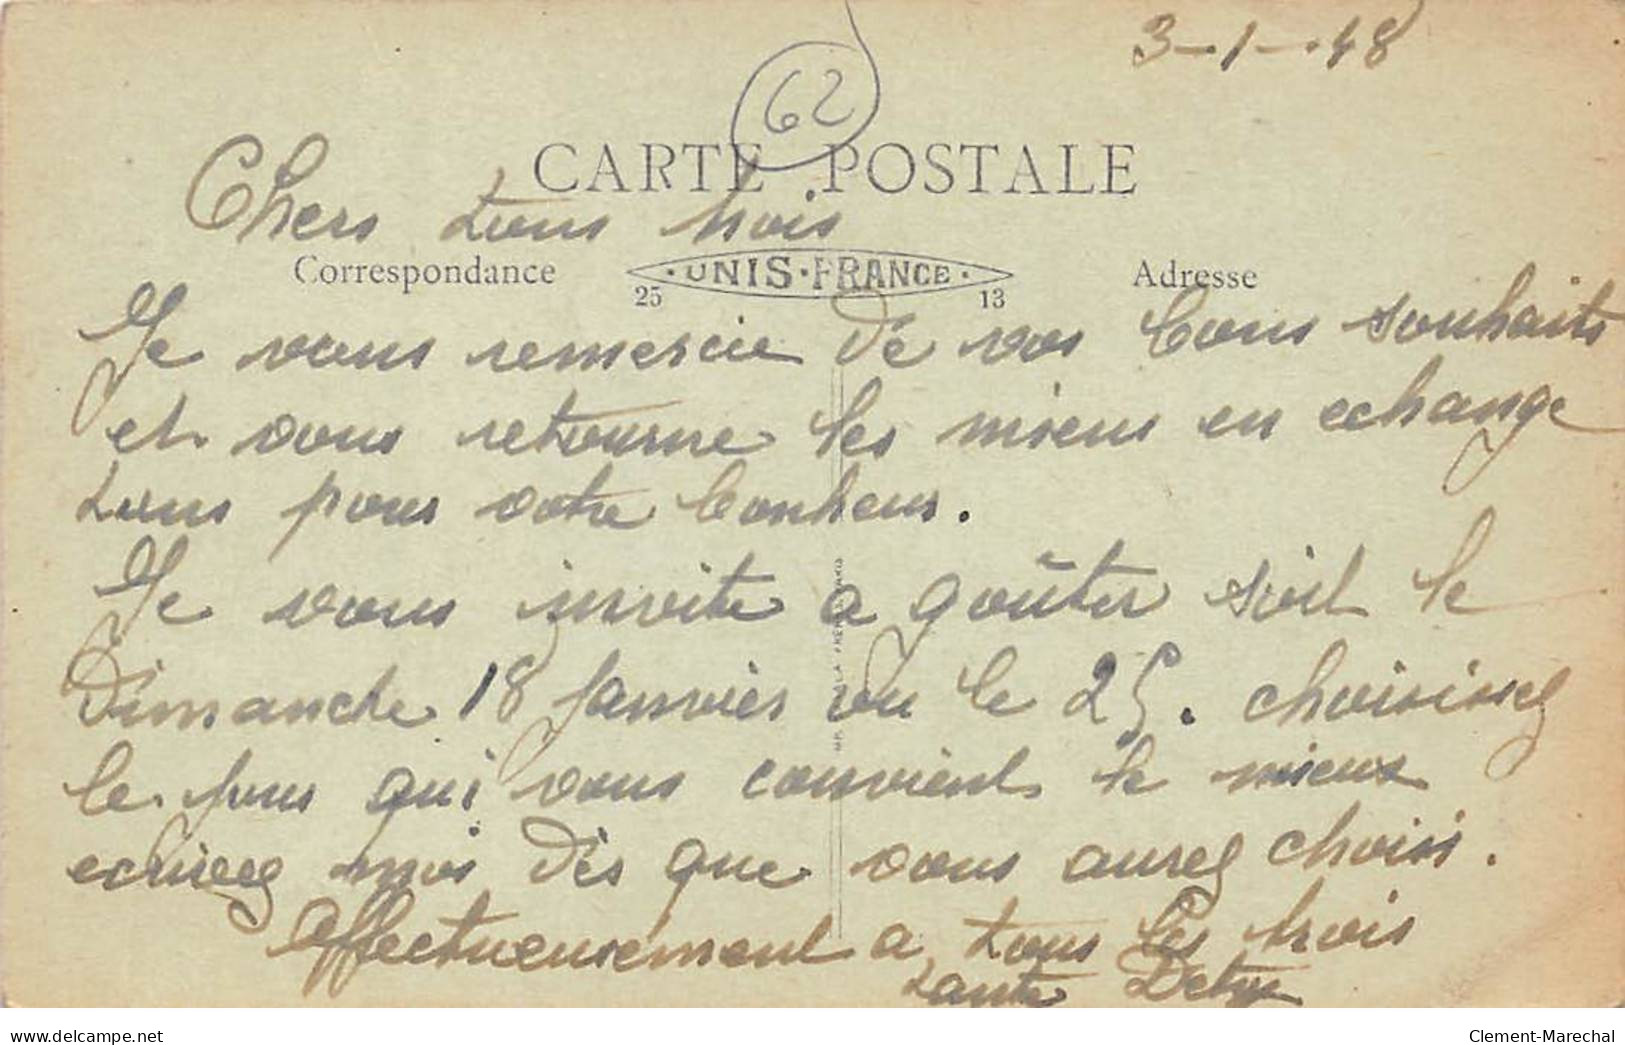 3-1-48
62
CARTE POSTALE
Chers tous trois
Correspondance
·UNIS·FRANCE·
25 13
Adresse
Je vous remercie de vos bons souhaits
et vous retourne les miens en echange
tous pour votre bonheur.
Je vous invite a goûter soit le
Dimanche 18 Janvier ou le 25. choisissez
le jour qui vous convient le mieux
ecrivez moi dès que vous aurez choisi.
affectueusement a tous les trois
tante
delcampe.net
Clement-Marechal